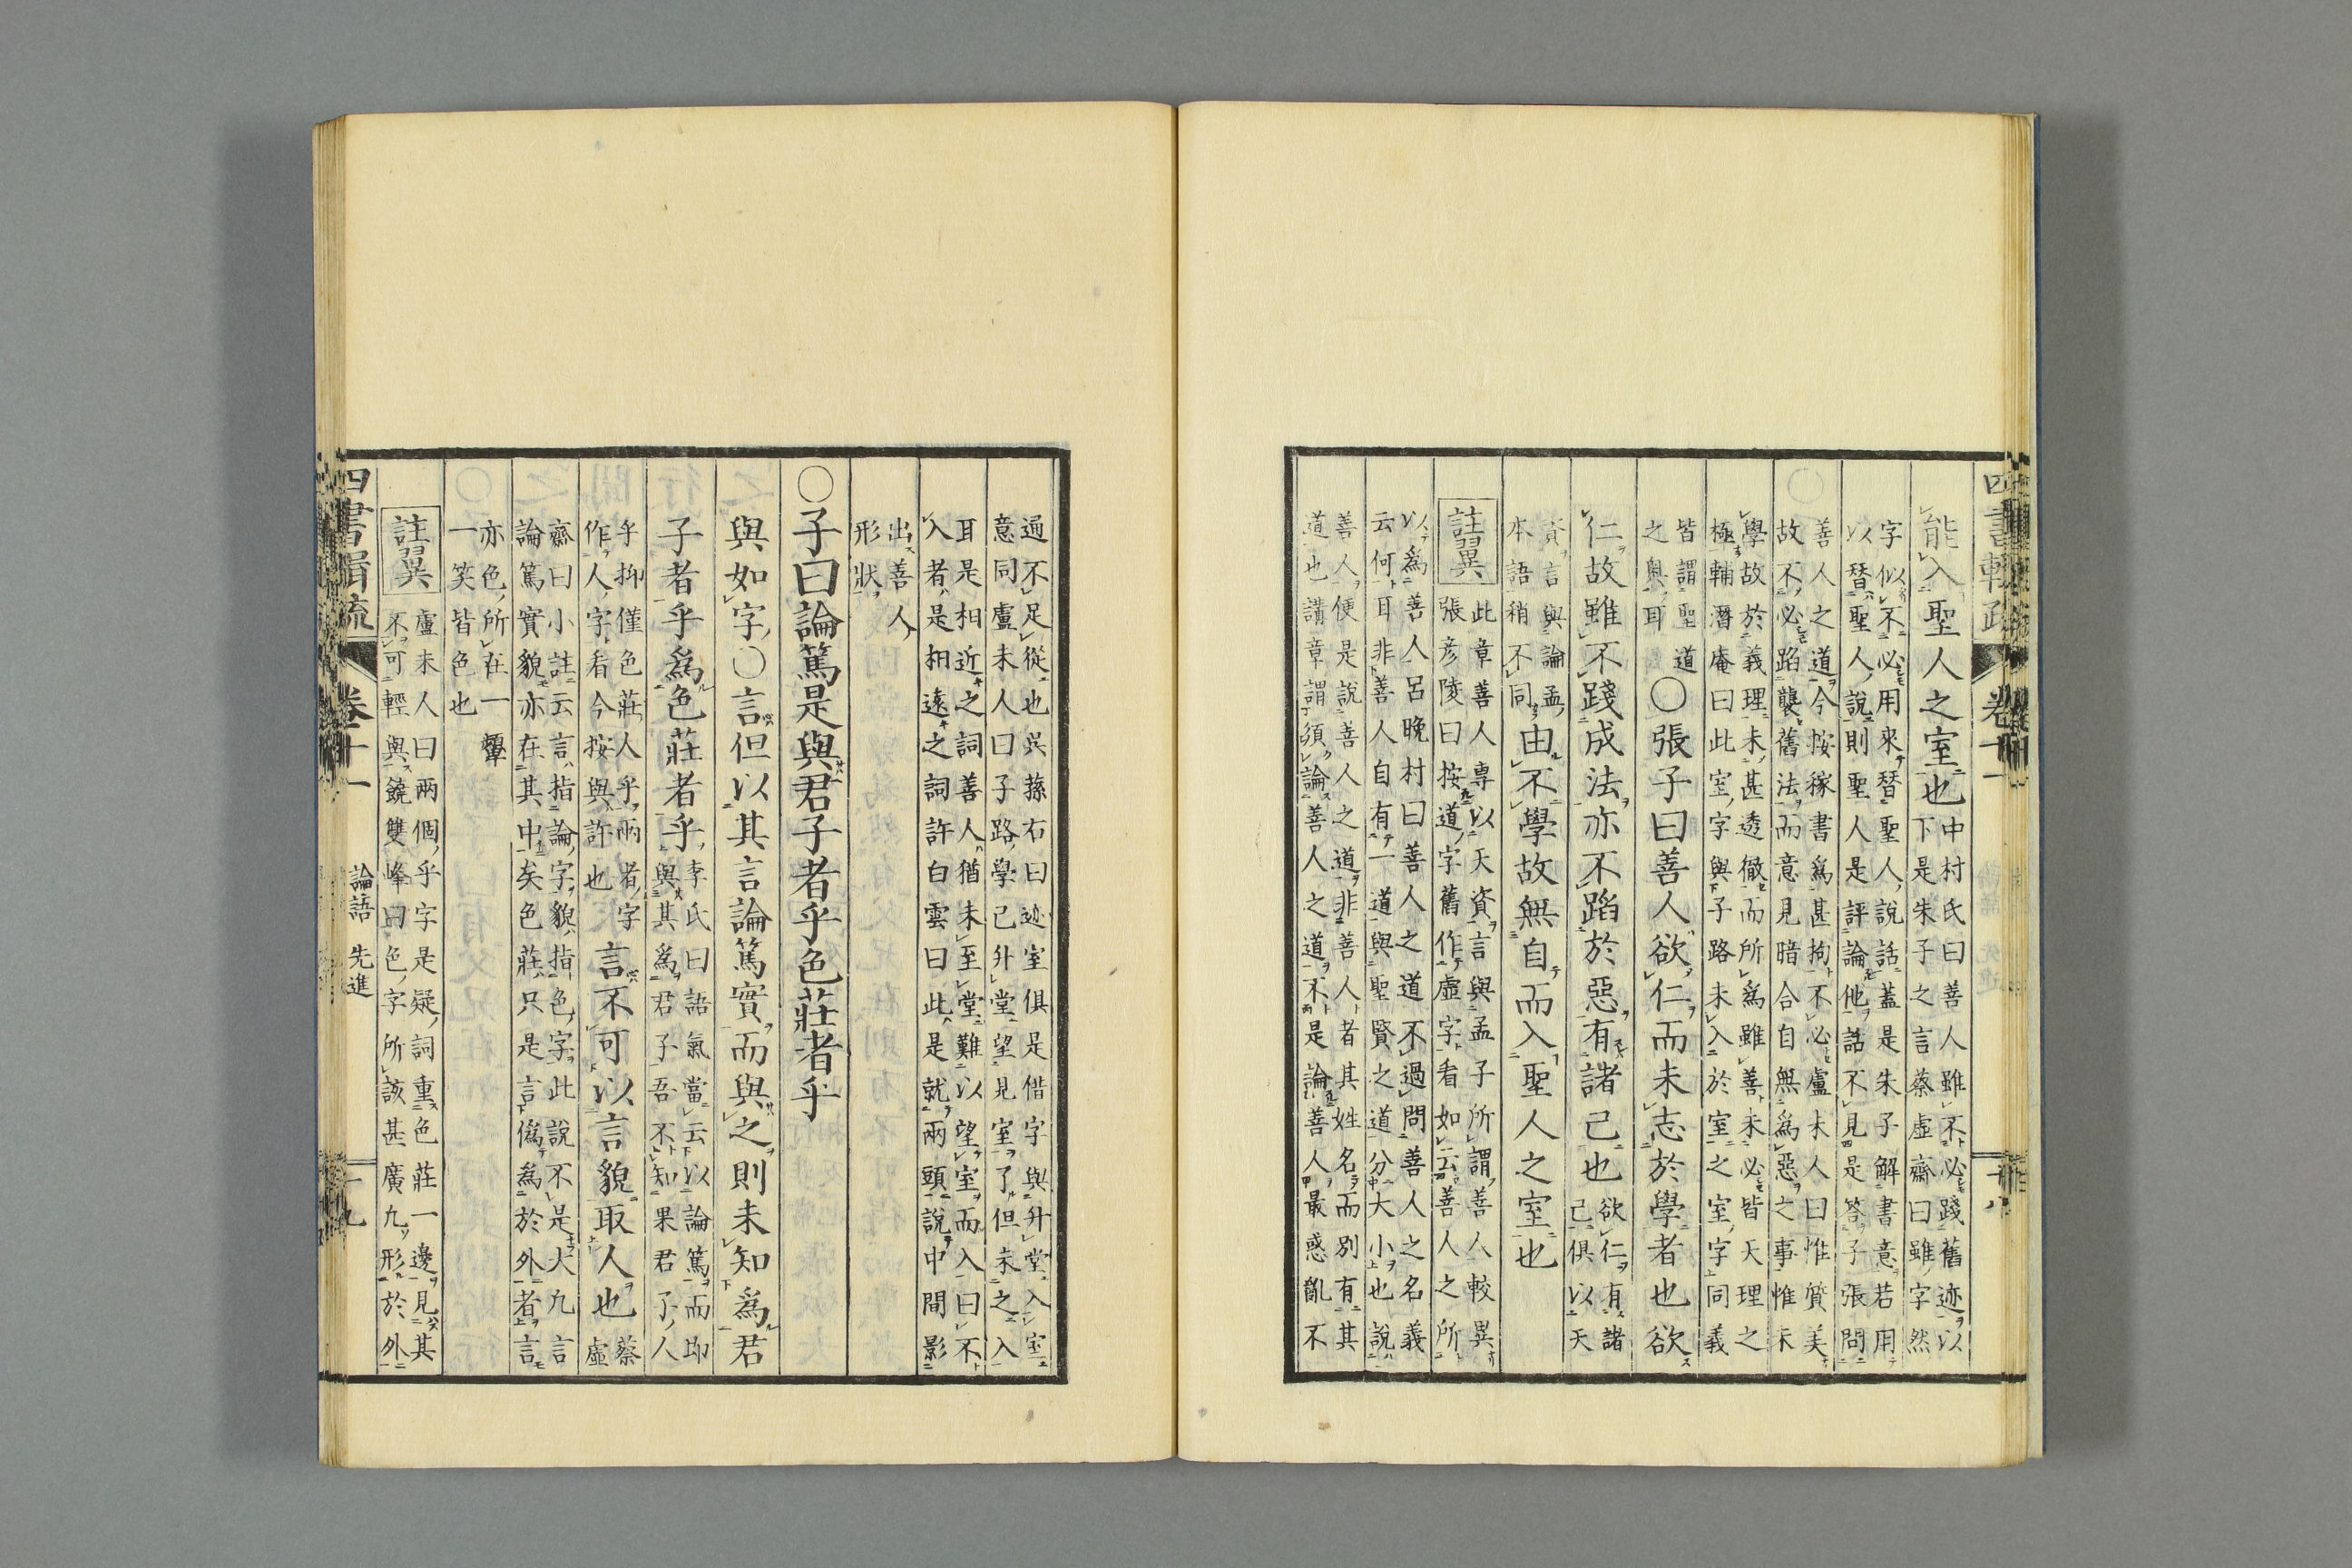 四書輯疏 卷十一 十八
能入聖人之室也
中村氏曰善人雖不必踐舊迹以
下是朱子之言蔡虛齋曰雖字然
字似不必用來替聖人說話蓋是朱子解書意若用
以替聖人說則聖人是評論他話不見是答子張問
善人之道今按稼書爲甚拘不必盧未人曰惟質美
故不必蹈襲舊法而意見暗合自無爲惡之事惟未
學故於義理未甚透徹而所爲雖善未必皆天理之
極輔潛庵曰此室字與子路未入於室之室字同義
皆謂聖道
之奧耳
○張子曰善人欲仁而未志於學者也欲
仁故雖不踐成法亦不蹈於惡有諸己也
欲仁有諸
己俱以天
資言與論孟
本語稍不同
由不學故無自而入聖人之室也
註翼
此章善人專以天資言與孟子所謂善人較異
張彦陵曰按道字舊作虛字看如云善人之所
以爲善人呂晩村曰善人之道不過問善人之名義
云何耳非善人自有一道與聖賢之道分大小也說
善人便是說善人之道非善人者其姓名而別有其
道也講章謂須論善人之道不是論善人最惑亂不
過不足從也吳蓀右曰迹室俱是借字與升堂入室
意同盧未人曰子路學已升堂望見室了但未之入
耳是相近之詞善人猶未至堂難以望室而入曰不
入者是相遠之詞許白雲曰此是就兩頭說中間影
出善人
形狀
○子曰論篤是與君子者乎色莊者乎
與如字○言但以其言論篤實而與之則未知爲君
子者乎爲色莊者乎
李氏曰語氣當云以論篤而卽
與其爲君子吾不知果君子人
乎抑僅色莊人乎兩者字
作人字看今按與許也
言不可以言貌取人也
蔡
虛
齋曰小註云言指論字貌指色字此說不是大凡言
論篤實貌亦在其中矣色莊只是言僞爲於外者言
亦色所在一顰
一笑皆色也
註翼
盧未人曰兩個乎字是疑詞重色莊一邊見其
不可輕與饒雙峰曰色字所該甚廣凡形於外
四書輯疏 卷十一 論語 先進 十九